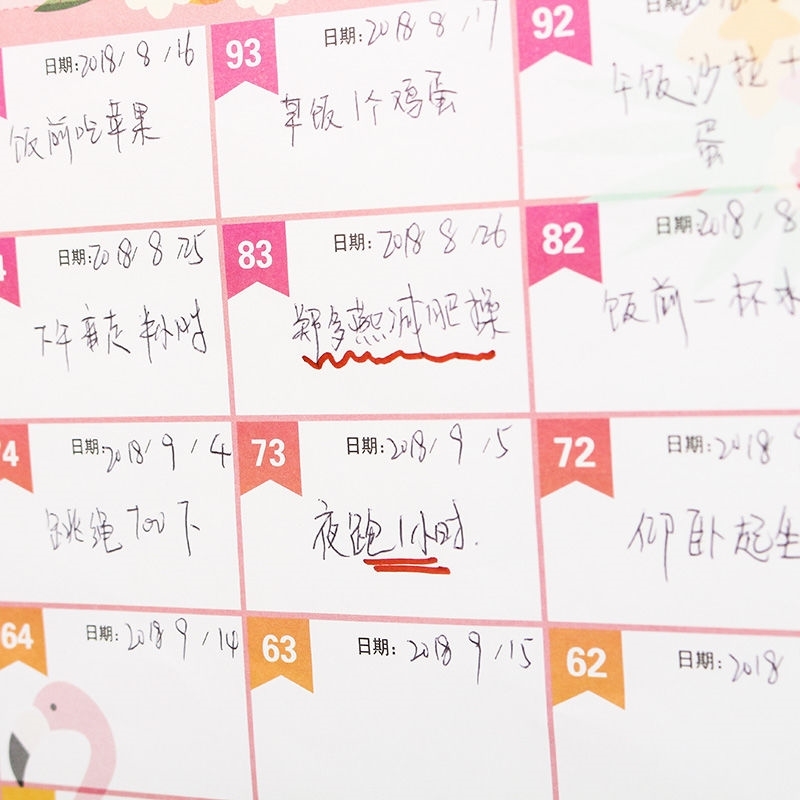 日期:2018/8/16
饭前吃苹果
93
日期:2018 8/17
早饭1个鸡蛋
92
日期:
午饭沙拉+
蛋
日期:2018/8/25
下午竞走半小时
83
日期:2018 8/26
郑多燕减肥操
82
日期:2018/8
饭前一杯水
74
日期:2018/9/4
跳绳700下
73
日期:2018/9/5
夜跑1小时.
72
日期:2018 9
仰卧起坐
64
日期:2018 9/14
63
日期:2018 9/15
62
日期:2018